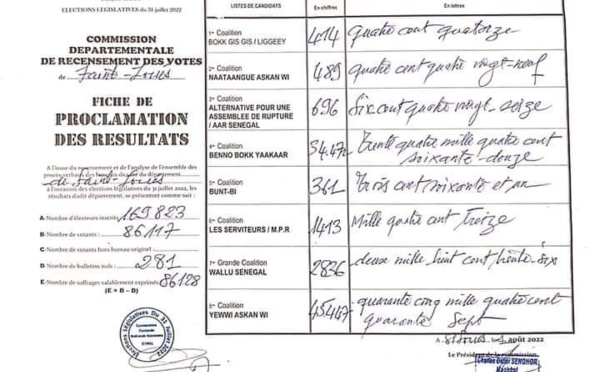 ELECTIONS LEGISLATIVES du 31 juillet 2022
COMMISSION
DEPARTEMENTALE
DE RECENSEMENT DES VOTES
de Saint-Louis
FICHE DE
PROCLAMATION
DES RESULTATS
A l'issue du recensement et de l'analyse de l'ensemble des
procès-verbaux des bureaux de vote du département
de Saint-Louis
à l'occasion des élections législatives du 31 juillet 2022, les
résultats dudit département, se présentent comme suit :
A Nombre d'électeurs inscrits 169823
B Nombre de votants : 86117
C Nombre de votants hors bureau originel :
D Nombre de bulletins nuls : 281
E Nombre de suffrages valablement exprimés 86128
(E = B – D)
LISTES DE CANDIDATS En chiffres En lettres
1re Coalition
BOKK GIS GIS / LIGGEEY 414 quatre cent quatorze
2e Coalition
NAATAANGUE ASKAN WI 489 quatre cent quatre vingt-neuf
3e Coalition
ALTERNATIVE POUR UNE
ASSEMBLEE DE RUPTURE
/ AAR SENEGAL 696 Six cent quatre vingt-seize
4e Coalition
BENNO BOKK YAAKAAR 34.472 Trente quatre mille quatre cent
soixante-douze
5e Coalition
BUNT-BI 361 Trois cent soixante et un
6e Coalition
LES SERVITEURS / M.P.R 1413 Mille quatre cent Treize
7e Grande Coalition
WALLU SENEGAL 2836 deux mille huit cent trente-six
8e Coalition
YEWWI ASKAN WI 45447 quarante cinq mille quatre cent
quarante Sept
A St Louis le août 2022
Le Président de la commission
Charles Didier SENGHOR
Magistrat
Elections Législatives Du 31 Juillet 2022